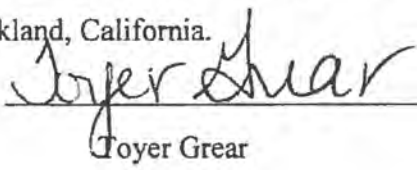 kland, California.
Toyer Grear
Toyer Grear